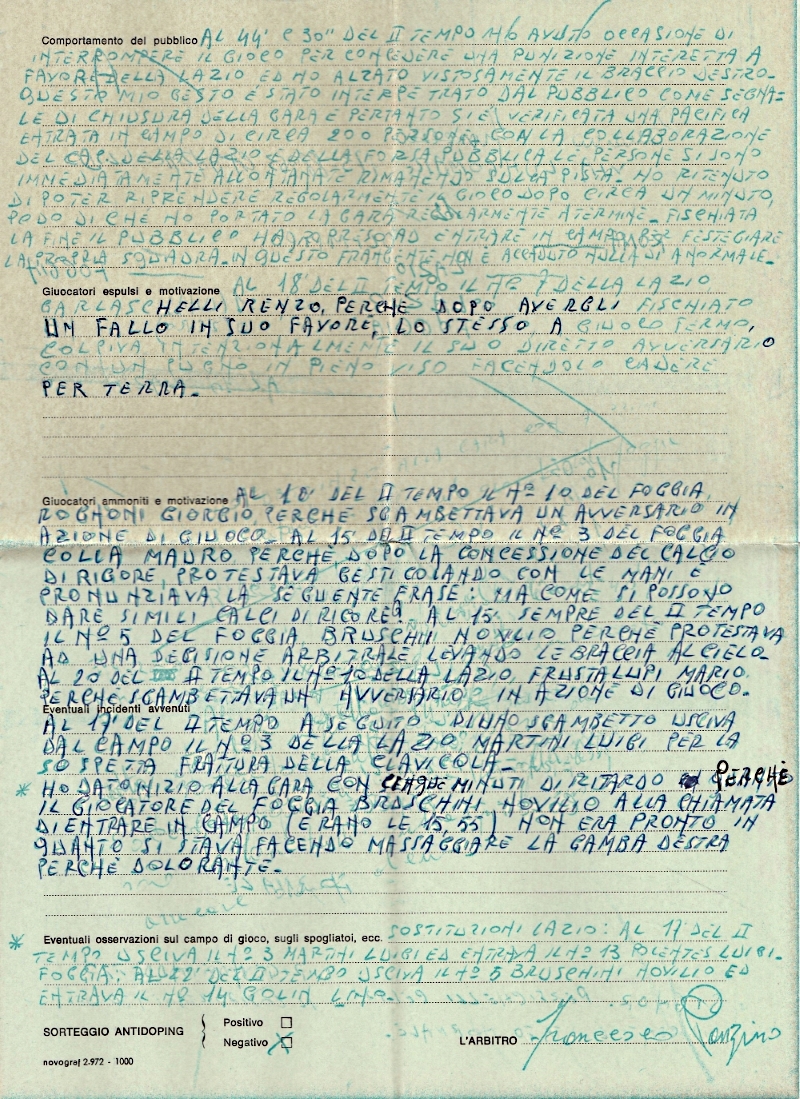 Comportamento del pubblico AL 44' E 30" DEL II TEMPO HO AVUTO OCCASIONE DI
INTERROMPERE IL GIOCO PER CONCEDERE UNA PUNIZIONE INTERETTA A
FAVORE DELLA LAZIO ED HO ALZATO VISTOSAMENTE IL BRACCIO DESTRO-
QUESTO MIO GESTO È STATO INTERPETRATO DAL PUBBLICO COME SEGNA=
LE DI CHIUSURA DELLA GARA E PERTANTO SI È VERIFICATA UNA PACIFICA
ENTRATA IN CAMPO DI CIRCA 200 PERSONE, CON LA COLLABORAZIONE
DEL CAP. DELLA LAZIO E DELLA FORSA PUBBLICA LE PERSONE SI SONO
IMMEDIATAMENTE ALLONTANATE RIMANENDO SULLA PISTA. HO RITENUTO
DI POTER RIPRENDERE REGOLARMENTE IL GIOCO DOPO CIRCA UN MINUTO,
PODO DI CHE HO PORTATO LA GARA REGOLARMENTE A TERMINE. FISCHIATA
LA FINE IL PUBBLICO HA RIPRESO AD ENTRARE IN CAMPO PER FESTEGGIARE
LA PROPRIA SQUADRA. IN QUESTO FRANGENTE NON È ACCADUTO NULLA DI ANORMALE-
Giuocatori espulsi e motivazione AL 18' DEL II TEMPO IL Nº 7 DELLA LAZIO
GARLASCHELLI RENZO, PERCHÈ DOPO AVERGLI FISCHIATO
UN FALLO IN SUO FAVORE, LO STESSO A GIUOCO FERMO,
COLPIVA INTENZIONALMENTE IL SUO DIRETTO AVVERSARIO
CON UN PUGNO IN PIENO VISO FACENDOLO CADERE
PER TERRA-
Giuocatori ammoniti e motivazione AL 10' DEL II TEMPO IL Nº 10 DEL FOGGIA,
ROGNONI GIORGIO PERCHÈ SGAMBETTAVA UN AVVERSARIO IN
AZIONE DI GIUOCO- AL 15 DEL II TEMPO IL Nº 3 DEL FOGGIA
COLLA MAURO PERCHÈ DOPO LA CONCESSIONE DEL CALCIO
DI RIGORE, PROTESTAVA GESTICOLANDO CON LE MANI E
PRONUNZIAVA LA SEGUENTE FRASE: MA COME SI POSSONO
DARE SIMILI CALCI DI RIGORE? AL 15' SEMPRE DEL II TEMPO
IL Nº 5 DEL FOGGIA BRUSCHINI NOVILIO PERCHÈ PROTESTAVA
AD UNA DECISIONE ARBITRALE LEVANDO LE BRACCIA AL CIELO-
AL 20 DEL II TEMPO IL Nº 10 DELLA LAZIO, FRUSTALUPI MARIO
PERCHÈ SGAMBETTAVA UN AVVERSARIO IN AZIONE DI GIUOCO.
Eventuali incidenti avvenuti
AL 17' DEL II TEMPO A SEGUITO DI UNO SGAMBETTO USCIVA
DAL CAMPO IL Nº 3 DELLA LAZIO MARTINI LUIGI PER LA
SOSPETTA FRATTURA DELLA CLAVICOLA-
* HO DATO INIZIO ALLA GARA CON CINQUE MINUTI DI RITARDO PERCHÈ
IL GIOCATORE DEL FOGGIA BRUSCHINI NOVILIO ALLA CHIAMATA
DI ENTRARE IN CAMPO (ERANO LE 15,55) NON ERA PRONTO IN
QUANTO SI STAVA FACENDO MASSAGGIARE LA GAMBA DESTRA
PERCHÈ DOLORANTE-
* Eventuali osservazioni sul campo di gioco, sugli spogliatoi, ecc. SOSTITUZIONI LAZIO: AL 17 DEL II
TEMPO USCIVA IL Nº 3 MARTINI LUIGI ED ENTRAVA IL Nº 13 POLENTES LUIGI-
FOGGIA: AL 22' DEL II TEMPO USCIVA IL Nº 5 BRUSCHINI NOVILIO ED
ENTRAVA IL Nº 14 GOLIN LINO-
SORTEGGIO ANTIDOPING
Positivo
Negativo X
L'ARBITRO Francesco Panzino
novograf 2-972 - 1000